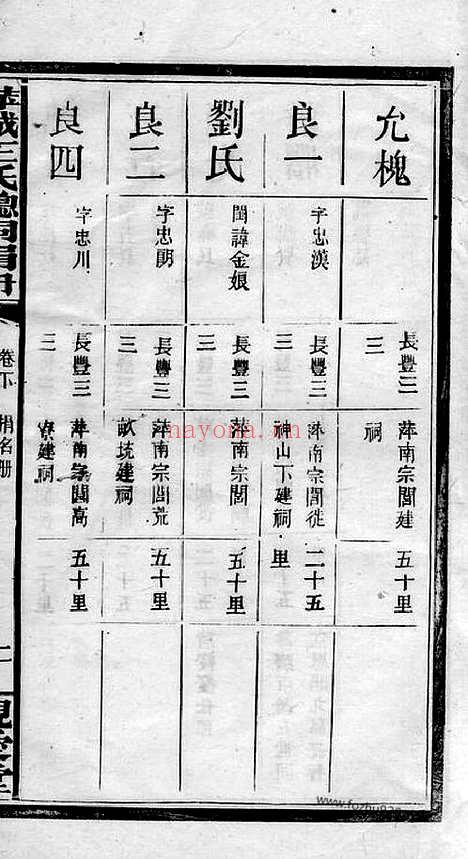 允槐
長豐三
三
萍南宗閣建
祠
五十里
良一
字忠漢
長豐三
三
萍南宗閣徙
神山下建祠
二十五
里
劉氏
閨諱金娘
長豐三
三
萍南宗閣
五十里
良二
字忠朗
長豐三
三
萍南宗閣荒
畝坑建祠
五十里
良四
字忠川
長豐三
三
萍南宗閣高
寮建祠
五十里
萍城王氏總祠捐冊
卷下
捐名册
二
nayona.cn